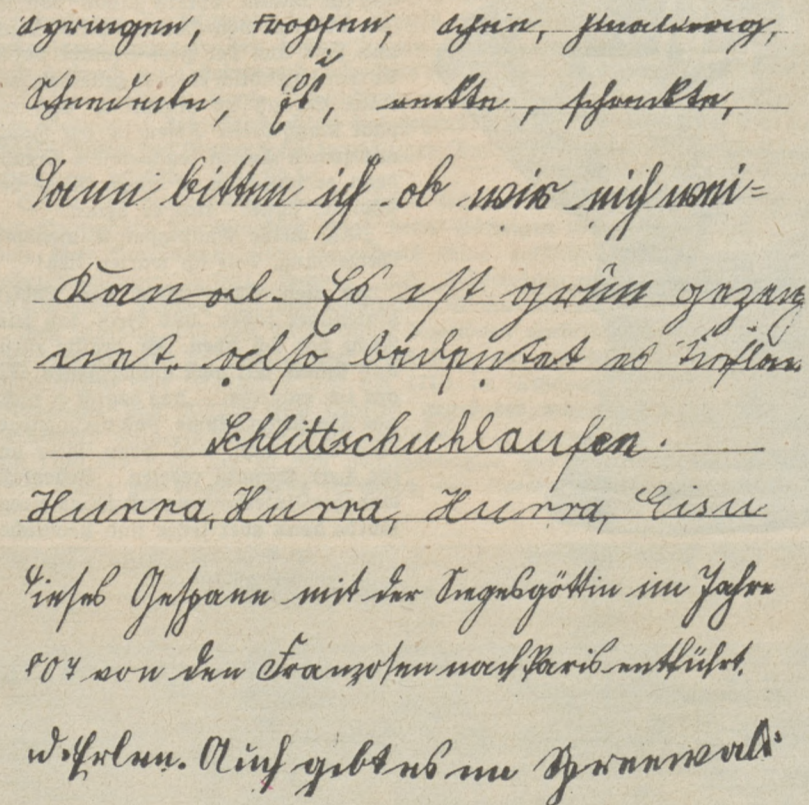 springen, tropfen, Schnee,
Schneedecke, Eis, weckte, schreckte,
Dann bitten ich ob wir nich wei=
Kanal. Es ist grün gezeig
net. also bedeutet es Tieflan
Schlittschuhlaufen.
Hurra, Hurra, Hurra, Eisu
Dieses Gespann mit der Siegesgöttin im Jahre
807 von den Franzosen nach Paris entführt.
d. Erlen. Auch gibt es im Spreewald